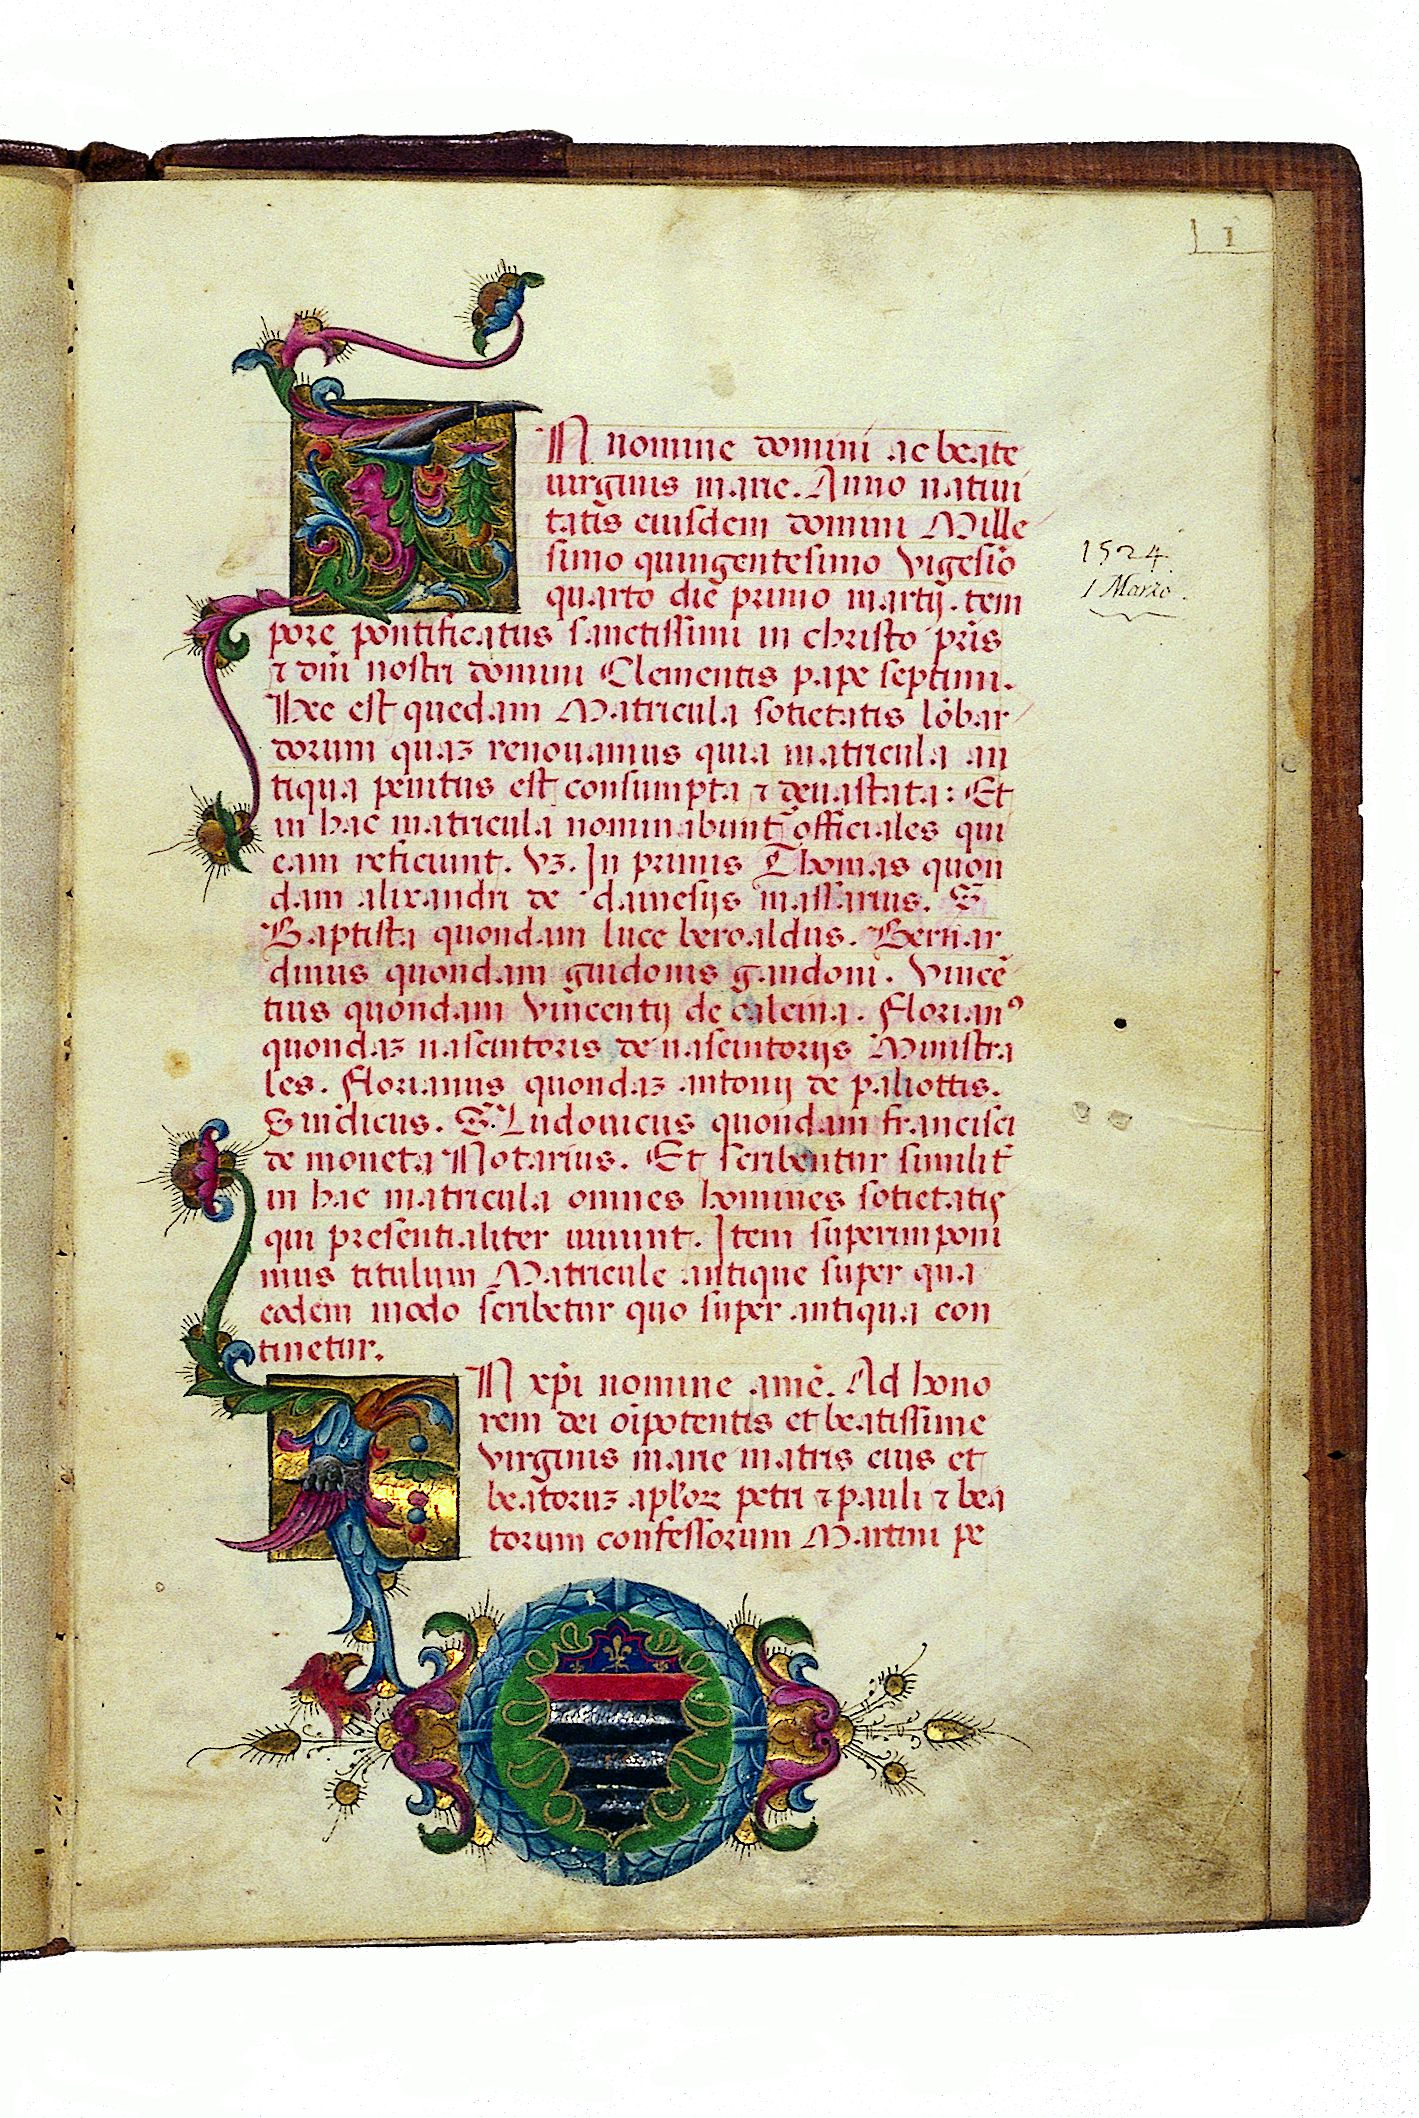 1
IN nomine domini ac beate
uirginis marie. Anno natiui
tatis eiusdem domini Mille
simo quingentesimo vigesiõ
quarto die primo martij. tem
1524.
1 Marzo.
pore pontificatus sanctissimi in christo pr̃is
⁊ dñi nostri domini Clementis pape septimi.
Hec est quedam Matricula sotietatis lõbar
dorum quaʒ renouamus quia matricula an
tiqua penitus est consumpta ⁊ deuastata: Et
in hac matricula nominabunt̃ officiales qui
eam reficiunt. vʒ. In primis Thomas quon
dam alixandri de dainesijs massarius. S
Baptista quondam luce beroaldus. Bernar
dinus quondam guidonis gandoni. Vincẽ
tius quondam Vincentij de calcina. Florianꝰ
quondaʒ nascintoris de nascintorijs Ministra
les. Florianus quondaʒ antonij de paliottis.
Sindicus. S. Ludouicus quondam francisci
de moneta Notarius. Et scribentur similit̃
in hac matricula omnes homines sotietatis
qui presentialiter uiuunt. Item superimponi
mus titulum Matricule antique super qua
eodem modo scribetur quo super antiqua con
tinetur.
IN xp̃i nomine amẽ. Ad hono
rem dei oĩpotentis et beatissime
virginis marie matris eius et
beatoruʒ apl'oꝝ petri ⁊ pauli ⁊ bea
torum confessorum Martini pe